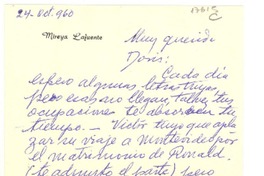 24-Oct. 960
Mireya Lafuente
Muy querida
Doris:
Cada día
espero algunas letras tuyas,
pero como no llegan, talvez tus
ocupaciones te absorben tu
tiempo. - Victor tuvo que apla
zar su viaje a Montevideo por
el matrimonio de Ronald.
(te adjunto el parte) pero